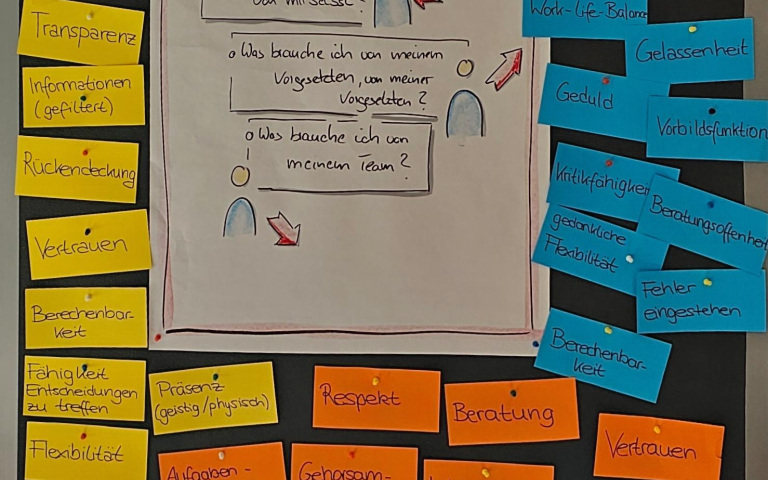 von mir selbst?
Was brauche ich von meinem
Vorgesetzten, von meiner
Vorgesetzten?
Was brauche ich von
meinem Team?
Transparenz
Informationen
(gefiltert)
Rückendeckung
Vertrauen
Berechenbar-
keit
Fähigkeit
Entscheidungen
zu treffen
Flexibilität
Präsenz
(geistig/physisch)
Respekt
Beratung
Vertrauen
Aufgaben-
Gehorsam-
Work-Life-Balance
Gelassenheit
Geduld
Vorbildsfunktion
Kritikfähigkeit
Beratungsoffenheit
gedankliche
Flexibilität
Fehler
eingestehen
Berechenbar-
keit